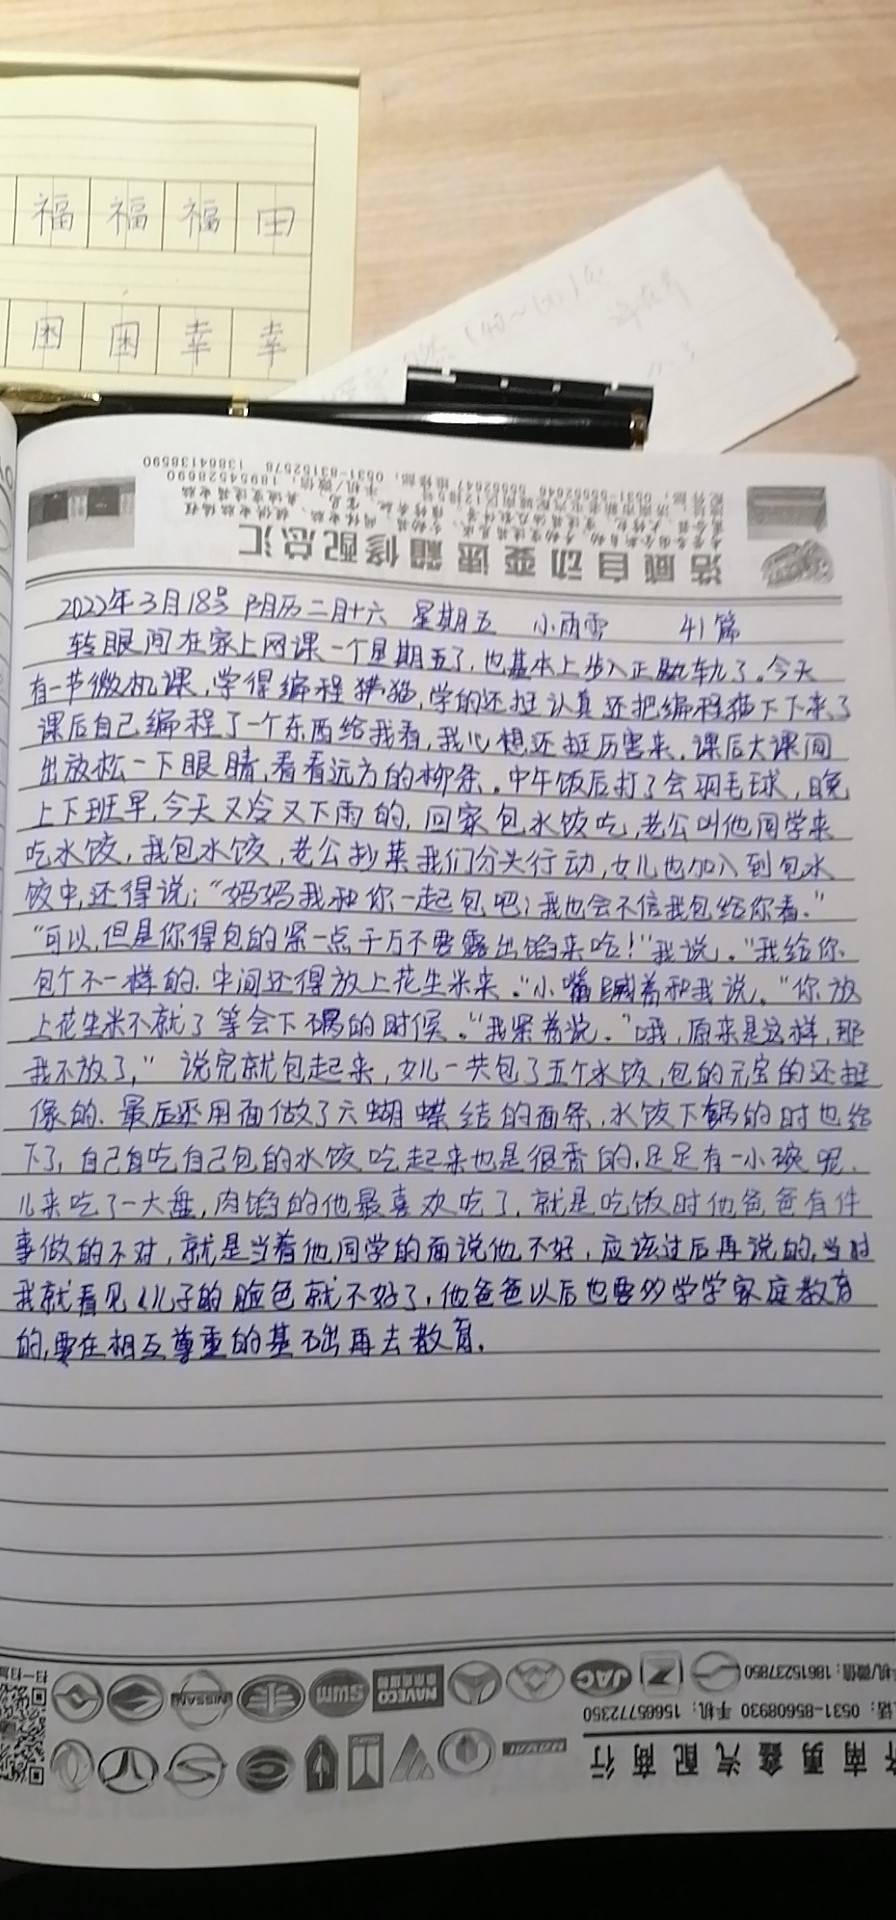 福 福 福 田
困 困 幸 幸
浩威自动变速箱修配总汇
2022年3月18号 阴历二月十六 星期五 小雨雪 41篇
转眼间在家上网课一个星期五了,也基本上步入正轨了。今天
有一节微机课,学得编程猫,学的还挺认真还把编程猫下下来了
课后自己编程了一个东西给我看,我心想还挺厉害来,课后大课间
出放松一下眼睛,看看远方的柳条。中午饭后打了会羽毛球,晚
上下班早,今天又冷又下雨的,回家包水饺吃,老公叫他同学来
吃水饺,我包水饺,老公抄菜我们分头行动,女儿也加入到包水
饺中,还得说;“妈妈我和你一起包吧;我也会不信我包给你看.”
“可以,但是你得包的紧一点千万不要露出馅来哈!”我说,“我给你
包个不一样的.中间还得放上花生米来.”小嘴瞒着和我说,“你放
上花生米不就了等会下锅的时候.”我紧着说.“哦,原来是这样,那
我不放了,” 说完就包起来,女儿一共包了五个水饺,包的元宝的还挺
像的.最后还用面做了六蝴蝶结的面条,水饺下锅的时也给
下了,自己自吃自己包的水饺吃起来也是很香的,足足有一小碗呢.
儿来吃了一大盘,肉馅的他最喜欢吃了,就是吃饭时他爸爸有件
事做的不对,就是当着他同学的面说他不好,应该过后再说的,当时
我就看见儿子的脸色就不好了,他爸爸以后也要多学学家庭教育
的,要在相互尊重的基础再去教育.
扫一扫
NISSAN SWM NAVECO JAC
手机/微信:18615237850
0531-85608930 手机:15665772350
济南勇鑫汽配商行